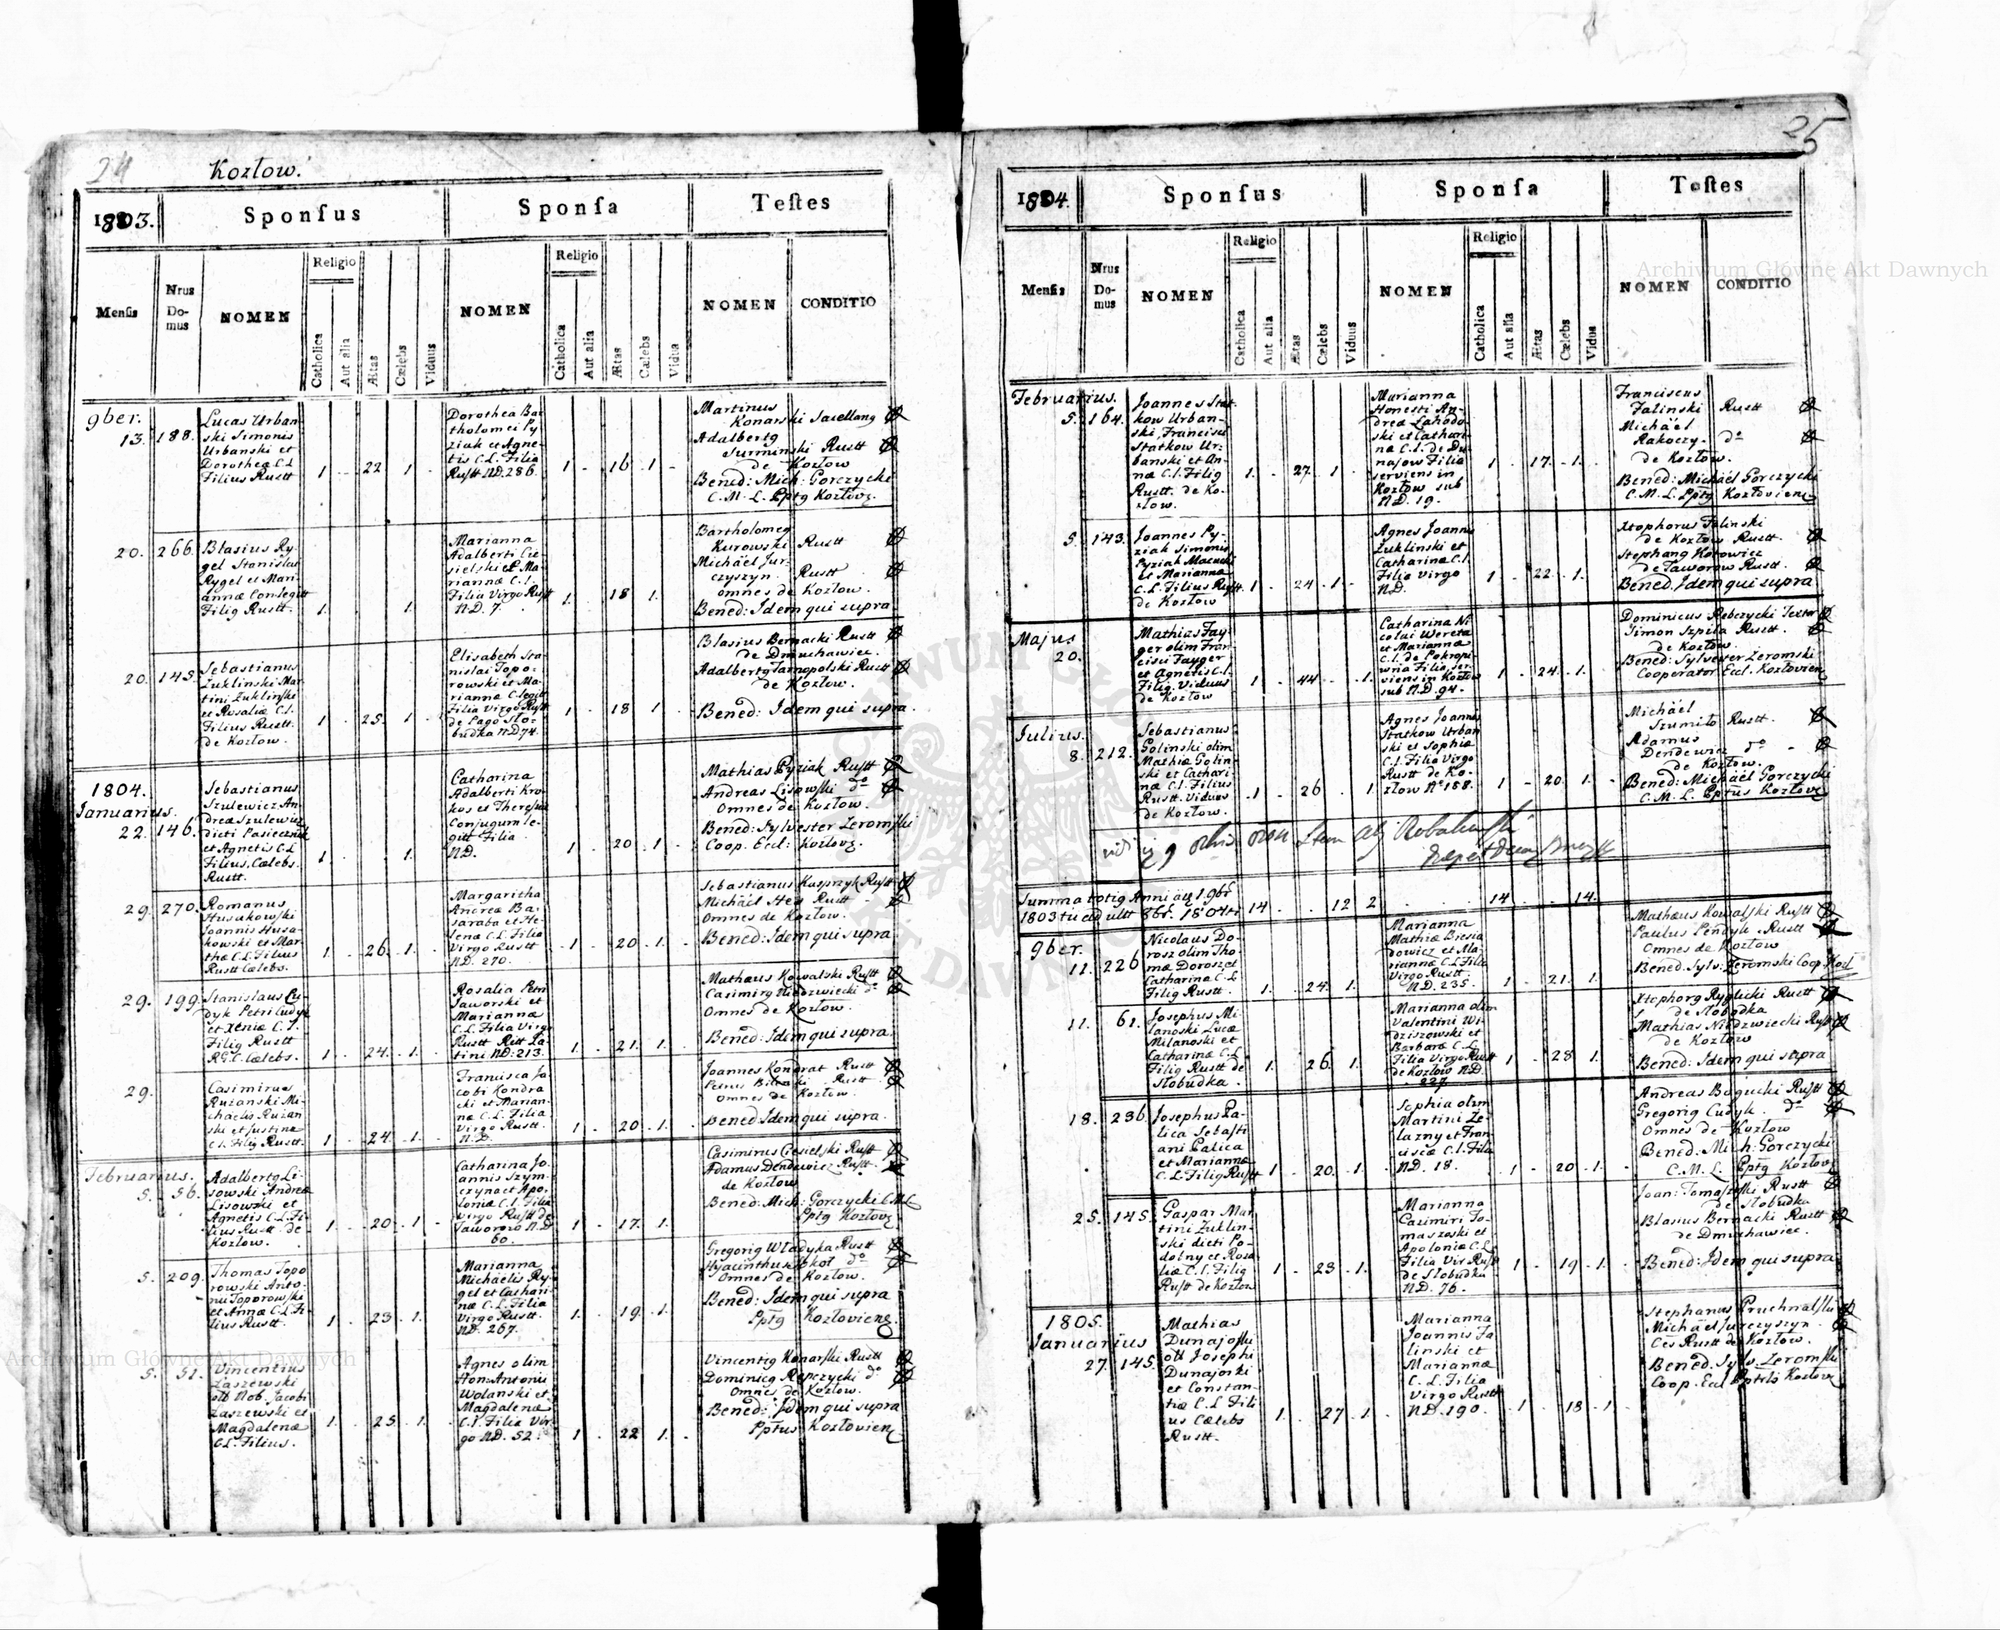 24
Kozłow.
1803.
Sponsus
Sponsa
Testes
Mensis
Nrus Do-mus
NOMEN
Religio
Catholica
Aut alia
Ætas
Cælebs
Viduus
NOMEN
Religio
Catholica
Aut alia
Ætas
Cælebs
Vidua
NOMEN
CONDITIO
9ber.
13. 188.
Lucas Urban
ski Simonis
Urbanski et
Dorothea C.L
Filius Rustt
1 22 1
Dorothea Bar
tholomei Py
ziak et Agne
tis C.L. Filia
Rustt N.D. 286.
1 16 1
Martinus
Konarski
Adalbertg
Surminski Rustt
de Kozłow
Bened: Mich: Gorczycki
C. M. L. Pptg Kozłovg.
20. 266.
Blasius Ry-
gel Stanislai
Rygel et Mari
annæ Con. legitt
Filig Rustt.
1. 1.
Marianna
Adalberti Cie
sielski et Ma
riannæ C.l.
Filia Virgo Rustt
N.D. 7.
1. 18 1.
Bartholomeg
Kurowski Rustt
Michäel Jur-
czyszyn Rustt
omnes de Kozłow.
Bened: Idem qui supra
20. 145.
Sebastianus
Żuklinski Mar
tini Żuklinski
et Rosaliæ C.l.
Filius Rustt.
de Kozłow.
1 25. 1
Elisabeth Sta-
nislai Topo-
rowski et Ma
riannæ C. legitt
Filia Virgo Rustt
de Pago Slo-
budka N.D 74.
1 18 1
Blasius Bernacki Rustt
de Dmuchawiec.
Adalbertg Tarnopolski Rustt
de Kozłow.
Bened: Idem qui supra.
1804.
Januarius.
22. 146.
Sebastianus
Szulewicz An
dreæ Szulewicz
dicti Pasiecznik
et Agnetis C.L
Filius. Cælebs.
Rustt.
1 1.
Catharina
Adalberti Kro
kos et Theresiæ
Conjugum le-
gitt Filia
N.D.
1 20 1
Mathias Pyziak Rustt
Andreas Lisowski do
Omnes de Kozłow.
Bened: Sylvester Zeromski
Coop. Eccl: Kozłovg.
29. 270.
Romanus
Husakowski
Joannis Husa-
kowski et Mar
thæ C.L Filius
Rustt Cælebs.
1 26 1.
Margaritha
Andreæ Ba-
raba et He-
lenæ C.L Filia
Virgo Rustt
N.D. 270.
1 20 1.
Sebastianus Kasprzyk Rustt
Michäel Hey Rustt
Omnes de Kozłow.
Bened: Idem qui supra
29. 199.
Stanislaus Cu-
dyk Petri Cudyk
et Xeniæ C.l.
Filig Rustt
R.G.C. Cælebs.
1 24 1
Rosalia Petri
Jaworski et
Mariannæ
C.L. Filia Virgo
Rustt Ritt La-
tini N.D: 213.
1 21. 1.
Mathæus Kowalski Rustt
Casimirg Niedzwiecki do
Omnes de Kozłow.
Bened: Idem qui supra
29.
Casimirus
Ruzanski Mi-
chaelis Ruzan
ski et Justinæ
C.l. Filig Rustt.
1 24. 1.
Francisca Ja
cobi Kondra
cki et Marian-
næ C.L. Filia.
Virgo Rustt.
N.D.
1 20 1
Joannes Kondrat Rustt
Rustt.
Omnes de Kozłow.
Bened Idem qui supra.
Februarius.
5. 56.
Adalbertg Li-
sowski Andreæ
Lisowski et
Agnetis C.L Fi-
lius Rustt. de
Kozłow.
1 20. 1
Catharina Jo-
annis Szym-
czyna et Apo-
loniæ C.l. Filia
Virgo Rustt de
Jaworow N.D
60.
1 17. 1.
Casimirus Ciesielski Rustt
Adamus Dendewicz Rustt.
de Kozłow
Bened: Mich: Gorczycki C.M.L
Pptg Kozłovg
5. 209.
Thomas Topo
rowski Anto-
nii Toporowski
et Annæ C.L Fi-
lius Rustt.
1 23. 1.
Marianna
Michaelis Ry-
gel et Cathari-
næ C.L. Filia
Virgo Rustt.
N.D. 267.
1. 19. 1.
Gregorig Władyka Rustt
Hyacinthus Kokot do
Omnes de Kozłow.
Bened: Idem qui supra
Pptg Kozłovieng
5. 51.
Vincentius
Łaszewski
Nob. Jacobi
Łaszewski et
Magdalenæ
C.L. Filius.
1. 25. 1
Agnes olim
Hon: Antonii
Wolanski et
Magdalenæ
C.l Filia Vir-
go N.D. 52.
1 22 1.
Vincentig Konarski Rustt
Dominicg Repczycki do
Omnes de Kozłow.
Bened: Idem qui supra
Pptus Kozłovieng
25
1804.
Sponsus
Sponsa
Testes
Mensis
Nrus Do-mus
NOMEN
Religio
Catholica
Aut alia
Ætas
Cælebs
Viduus
NOMEN
Religio
Catholica
Aut alia
Ætas
Cælebs
Vidua
NOMEN
CONDITIO
Februarius.
5. 164.
Joannes Stat-
kow Urban-
ski, Francisci
Statkow Ur-
banski et An-
næ C.l. Filig
Rustt. de Ko-
złow.
1. 27. 1
Marianna
Honesti An-
dreæ Zahodo
ski et Cathari
næ C.l. de Du
najow Filia
serviens in
Kozłow sub
N.D. 19.
1 17. 1.
Franciscus
Falinski Rustt
Michäel
Rakoczy do
de Kozłow.
Bened: Michäel Gorczycki
C. M. L. Pptg Kozłovieng
5. 143.
Joannes Py-
ziak Simonis
Pyziak
et Mariannæ
C.L. Filius Rustt
de Kozłow
1 24 1
Agnes Joannis
Żuklinski et
Catharinæ C.l.
Filia Virgo
N.D.
1 22. 1.
Xtophorus Falinski
de Kozłow Rustt.
Stephang Kotowicz
de Jaworow Rustt.
Bened: Idem qui supra
Majus
20.
Mathias Fay
ger olim Fran-
cisci Fayger
et Agnetis C.l.
Filig. Viduus
de Kozłow
1 44 1.
Catharina Ni
colai Wereta
et Mariannæ
C.l. de Pokropi
wna Filia, ser
viens in Kozłow
sub N.D. 94.
1 24 1.
Dominicus Rebczycki Textor
Simon Szpila Rustt.
de Kozłow.
Bened: Sylvester Zeromski
Cooperator Eccl. Kozłovien
Julius.
8. 212.
Sebastianus
Golinski olim
Mathiæ Golin-
ski et Cathari-
næ C.l. Filius
Rustt. Viduus
de Kozłow.
1 26 1
Agnes Joannis
Statkow Urban
ski et Sophiæ
C.l. Filia Virgo
Rustt de Ko-
złow No 188.
1 20. 1.
Michäel
Szumiło Rustt.
Adamus
Dendewicz do
de Kozłow.
Bened: Michäel Gorczycki
C. M. L. Pptus Kozłovg
Summa totig Anni
14 12 2 14 14.
9ber.
11. 226
Nicolaus Do-
rosz olim Tho
mæ Dorosz et
Catharinæ C.L
Filig Rustt.
1. 24. 1.
Marianna
Mathiæ Biesia
dowicz et Ma-
riannæ C.L Filia
Virgo Rustt.
N.D. 235.
1 21. 1.
Mathæus Kowalski Rustt
Paulus Pendyk Rustt
Omnes de Kozłow
Bened: Sylv. Zeromski Coop
11. 61.
Josephus Mi
lanoski Lucæ
Milanoski et
Catharinæ C.L
Filig Rustt de
Słobudka.
1. 26 1.
Marianna olim
Valentini Wi-
dziszowski et
Barbaræ C.L
Filia Virgo Rustt
de Kozłow N.D
227.
1 28 1.
Xtophorg Ryglicki Rustt
de Słobodka
Mathias Niedzwiecki Rustt
de Kozłow
Bened: Idem qui supra
18. 236.
Josephus Pa-
lica Sebasti
ani Palica
et Mariannæ
C.L Filig Rustt
1 20. 1.
Sophia olim
Martini Że-
lazny et Fran
ciscæ C.l. Filia
N.D. 18.
1 20 1.
Andreas Bogucki Rustt
Gregorig Cudyk. do
Omnes de Kozłow
Bened: Mich: Gorczycki
C. M. L. Pptg Kozłovg
25. 145.
Gaspar Mar-
tini Żuklin-
ski dicti Po-
dolny et Rosa-
liæ C.l. Filig
Rustt de Kozłow
1 23 1.
Marianna
Casimiri To-
maszeski et
Apoloniæ C.L
Filia Vir Rustt
de Słobudka
N.D. 76.
1 19 1
Joan: Tomaszeski Rustt
de Słobudka
Blasius Bernacki Rustt
de Dmuchawiec.
Bened: Idem qui supra
1805.
Januarius
27. 145.
Mathias
Dunajoski
Josephi
Dunajoski
et Constan-
tiæ C.L Fili
us Cælebs
Rustt.
1. 27 1.
Marianna
Joannis Fa
linski et
Mariannæ
C.L. Filia
Virgo Rustt
N.D. 190.
1 18 1.
Stephanus Pruchnalski
Michäel Jurczyszyn.
Rustt de Kozłow.
Bened. Sylv. Zeromski
Coop. Eccl Kozłovg
Archiwum Główne Akt Dawnych
Archiwum Główne Akt Dawnych